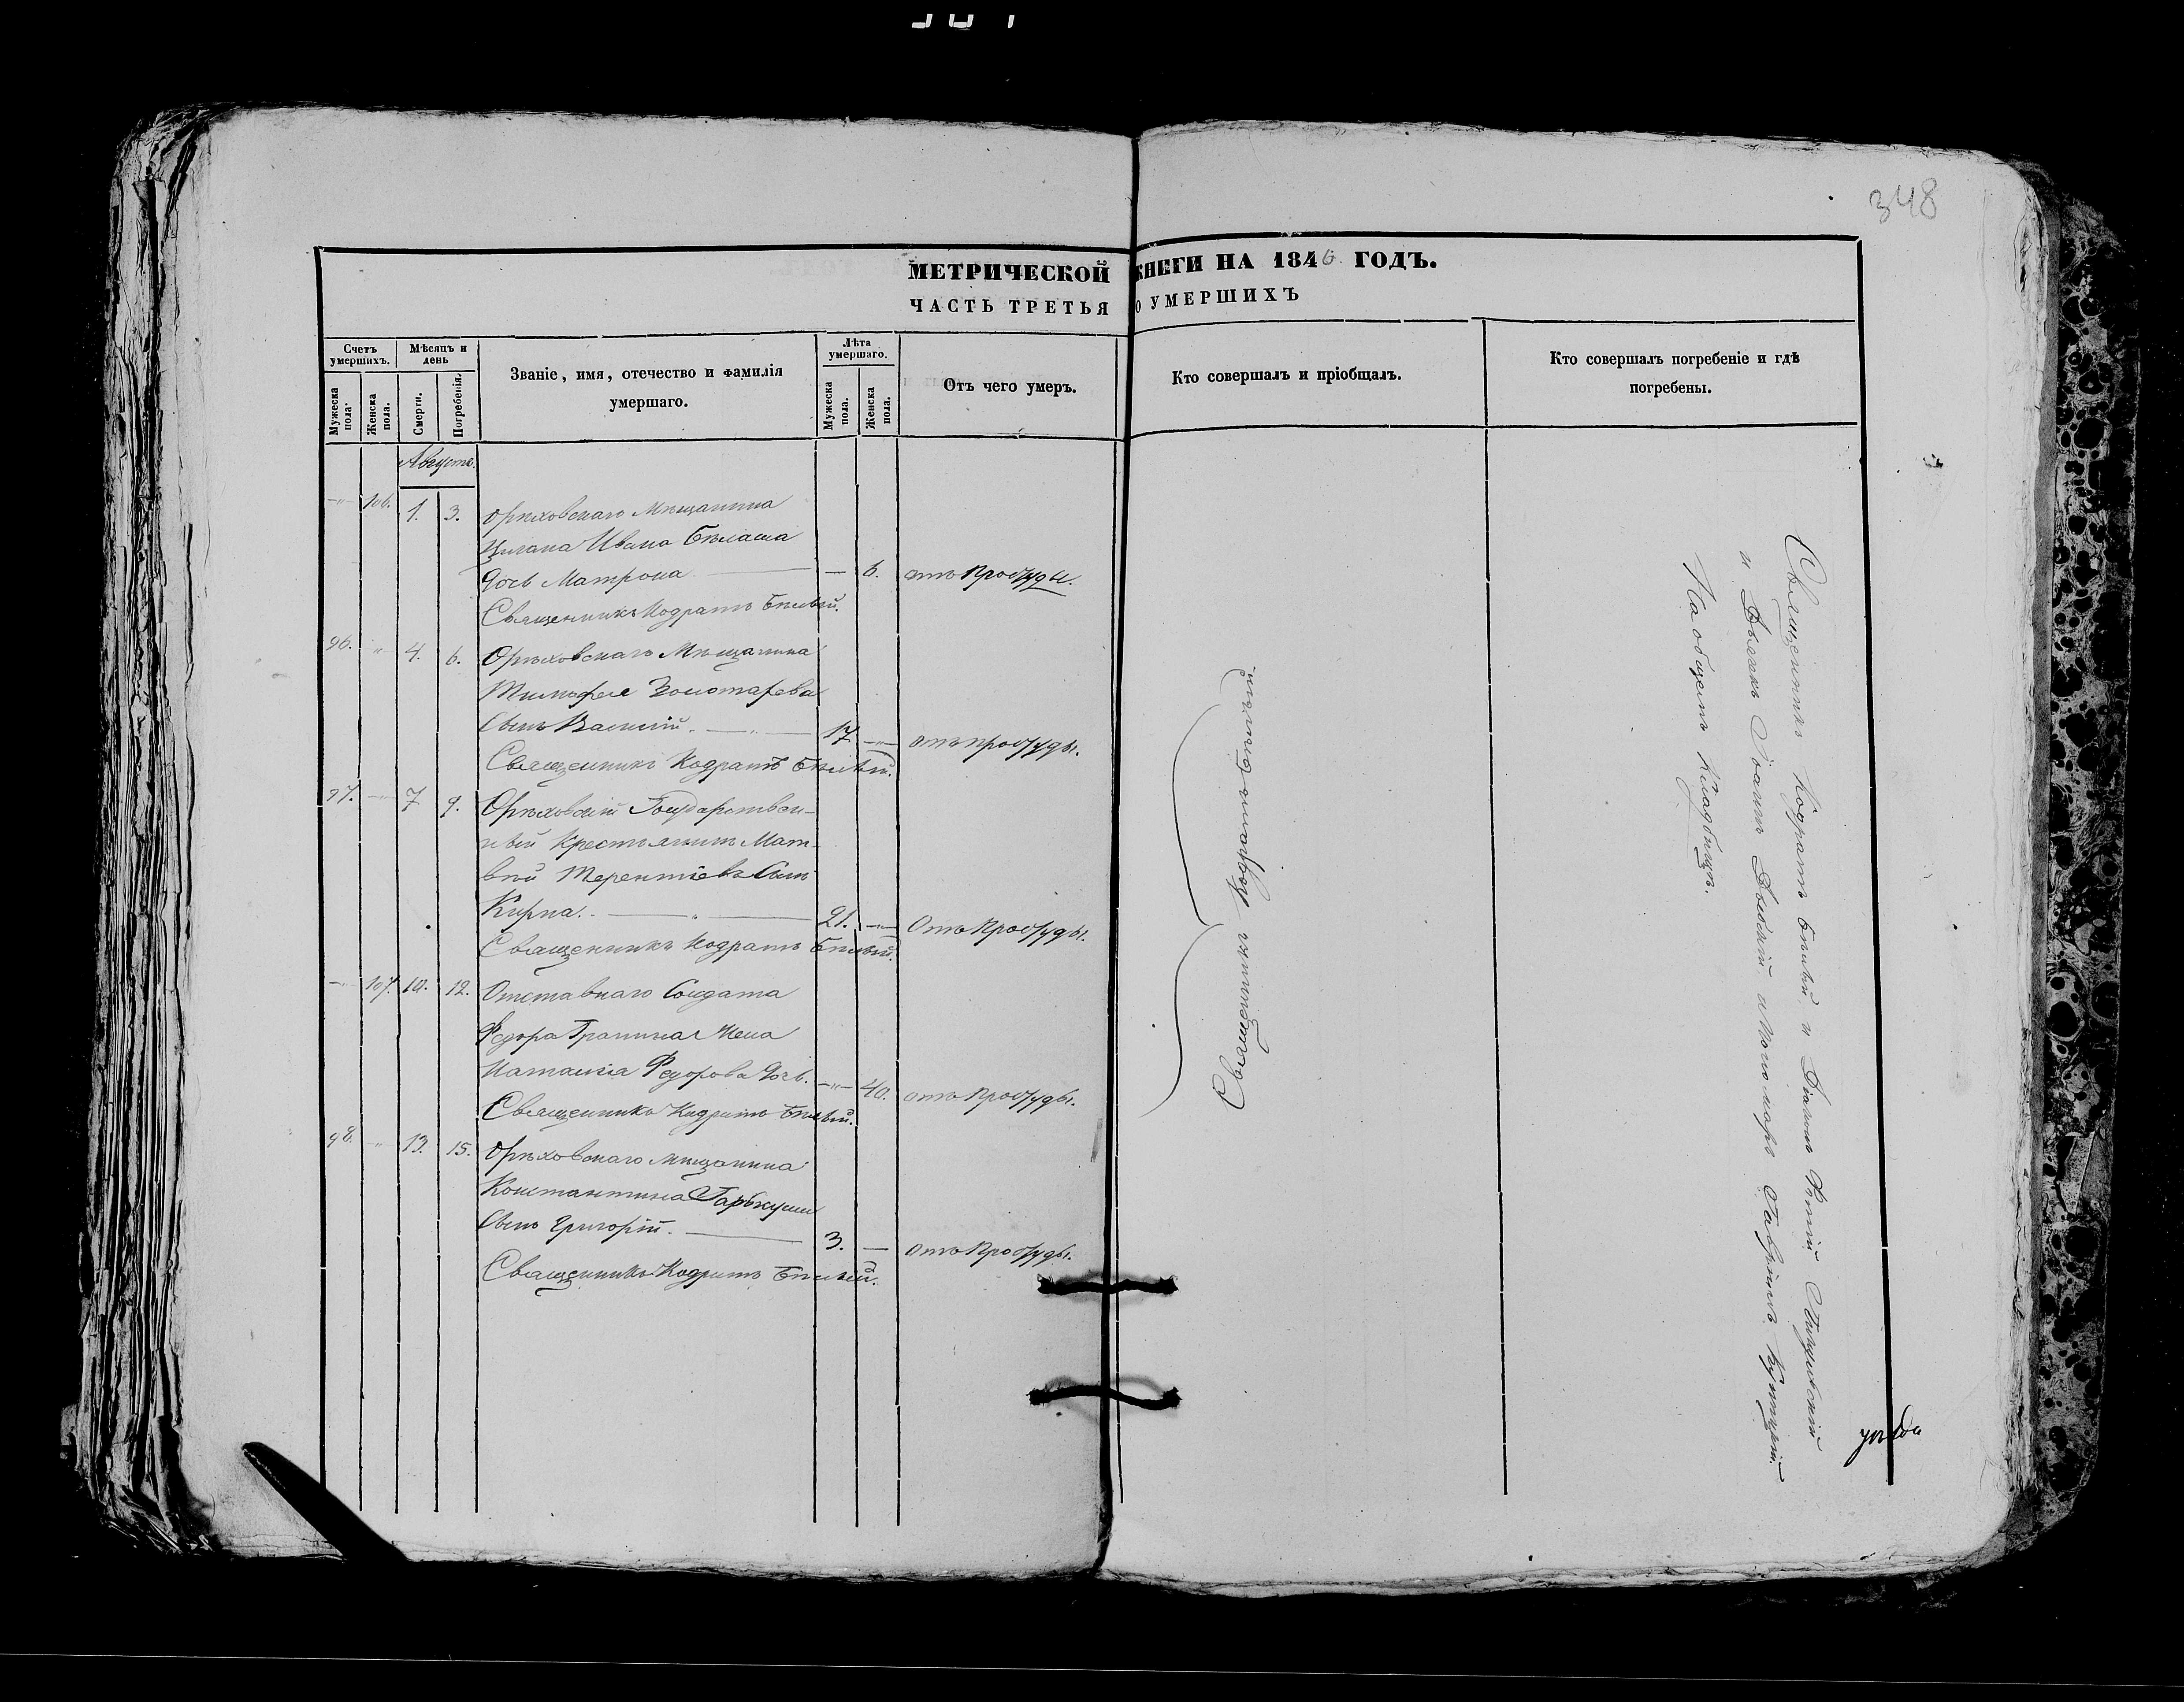 348
МЕТРИЧЕСКОЙ КНИГИ НА 1846 ГОДЪ.
ЧАСТЬ ТРЕТЬЯ О УМЕРШИХЪ
Счетъ умершихъ.
Мѣсяцъ и день
Званіе, имя, отечество и фамилія умершаго.
Лѣта умершаго.
Отъ чего умеръ.
Кто совершалъ и пріобщалъ.
Кто совершалъ погребеніе и гдѣ погребены.
Мужеска пола.
Женска пола.
Смерти.
Погребенія.
Мужеска пола.
Женска пола.
Августъ.
106. 1. 3. Орѣховскаго Мѣщанина
Цигана Ивана Бѣлаша
Дочь Матрона — 6. отъ Простуды.
Священникъ Кодратъ Бѣлый.
96. 4. 6. Орѣховскаго Мѣщанина
Тимофея Золотарева
Сынъ Василій. 17 — отъ простуды.
Священникъ Кодратъ Бѣлый.
97. 7 9. Орѣховскій Государствен-
ный Крестьянинъ Мат-
вѣй Терентіевъ Сынъ
Кирпа. 21. — Отъ Простуды.
Священникъ Кодратъ Бѣлый.
107. 10. 12. Отставнаго Солдата
Федора Жена
Наталія Федорова Дочь. — 40. отъ Простуды.
Священникъ Кодратъ Бѣлый.
98. 13. 15. Орѣховскаго мѣщанина
Константина Гарькуши
Сынъ Григорій. 3. — отъ Простуды.
Священникъ Кодратъ Бѣлый.
Священникъ Кодратъ Бѣлый
Священникъ Кодратъ Бѣлый и
и Іоаннъ и Пономарь Гавріилъ
На общемъ Кладбищѣ.